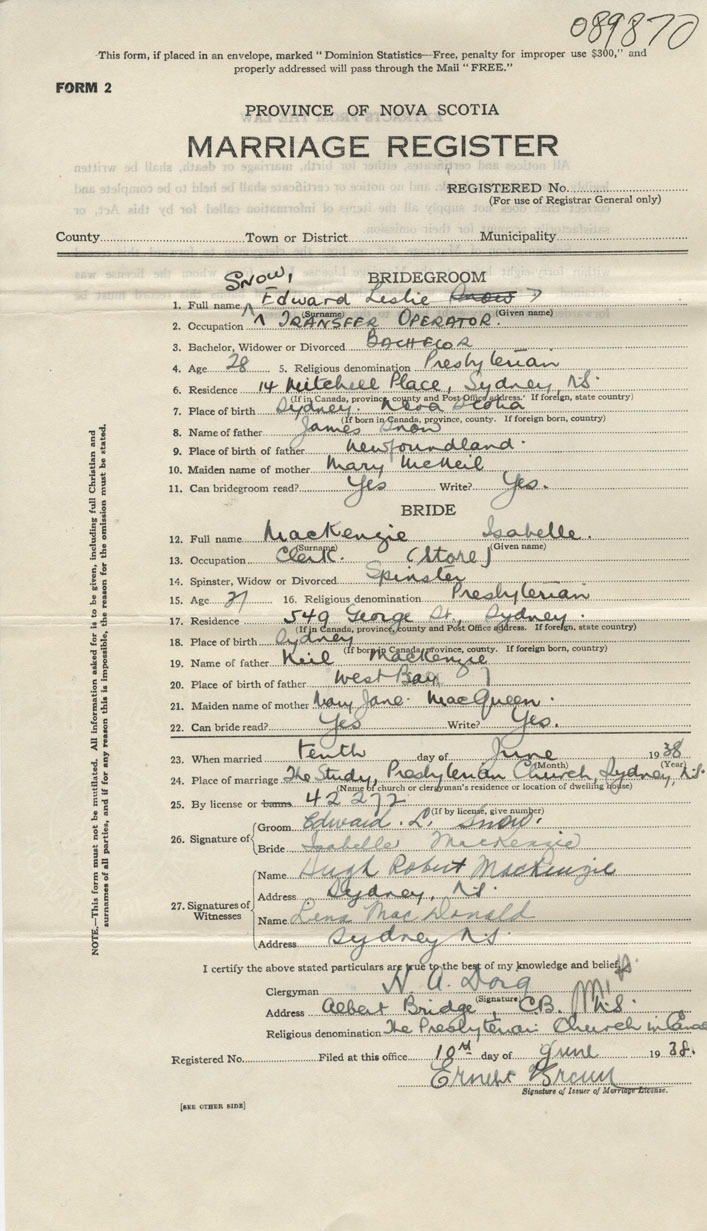 089870
This form, if placed in an envelope, marked "Dominion Statistics—Free, penalty for improper use $300," and
properly addressed will pass through the Mail "FREE."
FORM 2
PROVINCE OF NOVA SCOTIA
MARRIAGE REGISTER
REGISTERED No.
(For use of Registrar General only)
County Town or District Municipality
Snow, BRIDEGROOM
1. Full name Edward Leslie Snow
(Surname) (Given name)
2. Occupation TRANSFER OPERATOR.
3. Bachelor, Widower or Divorced BACHELOR
4. Age 28 5. Religious denomination Presbyterian
6. Residence 14 Mitchell Place, Sydney, N.S.
(If in Canada, province, county and Post Office address. If foreign, state country)
7. Place of birth Sydney. Nova Scotia
(If born in Canada, province, county. If foreign born, country)
8. Name of father James Snow
9. Place of birth of father Newfoundland.
10. Maiden name of mother Mary McNeil
11. Can bridegroom read? Yes Write? Yes.
BRIDE
12. Full name MacKenzie Isabelle.
(Surname) (Given name)
13. Occupation Clerk. (Store)
14. Spinster, Widow or Divorced Spinster
15. Age 21 16. Religious denomination Presbyterian
17. Residence 549 George St., Sydney.
(If in Canada, province, county and Post Office address. If foreign, state country)
18. Place of birth Sydney
(If born in Canada, province, county. If foreign born, country)
19. Name of father Neil MacKenzie
20. Place of birth of father West Bay
21. Maiden name of mother Mary Jane MacQueen.
22. Can bride read? Yes Write? Yes.
23. When married tenth day of June 1938
(Month) (Year)
24. Place of marriage The Study, Presbyterian Church, Sydney, N.S.
(Name of church or clergyman's residence or location of dwelling house)
25. By license or banns 42272
(If by license, give number)
26. Signature of Groom Edward. L. Snow.
Bride Isabelle MacKenzie
27. Signatures of Witnesses
Name Hugh Robert MacKenzie
Address Sydney, N.S.
Name Lena MacDonald
Address Sydney N.S.
I certify the above stated particulars are true to the best of my knowledge and belief.
Clergyman H. A. Doig
(Signature)
Address Albert Bridge, C.B. N.S.
Religious denomination The Presbyterian Church in Canada
Registered No. Filed at this office 10 day of June 1938.
Ernest Brown
Signature of Issuer of Marriage License.
[SEE OTHER SIDE]
NOTE.—This form must not be mutilated. All information asked for is to be given, including full Christian and
surnames of all parties, and if for any reason this is impossible, the reason for the omission must be stated.